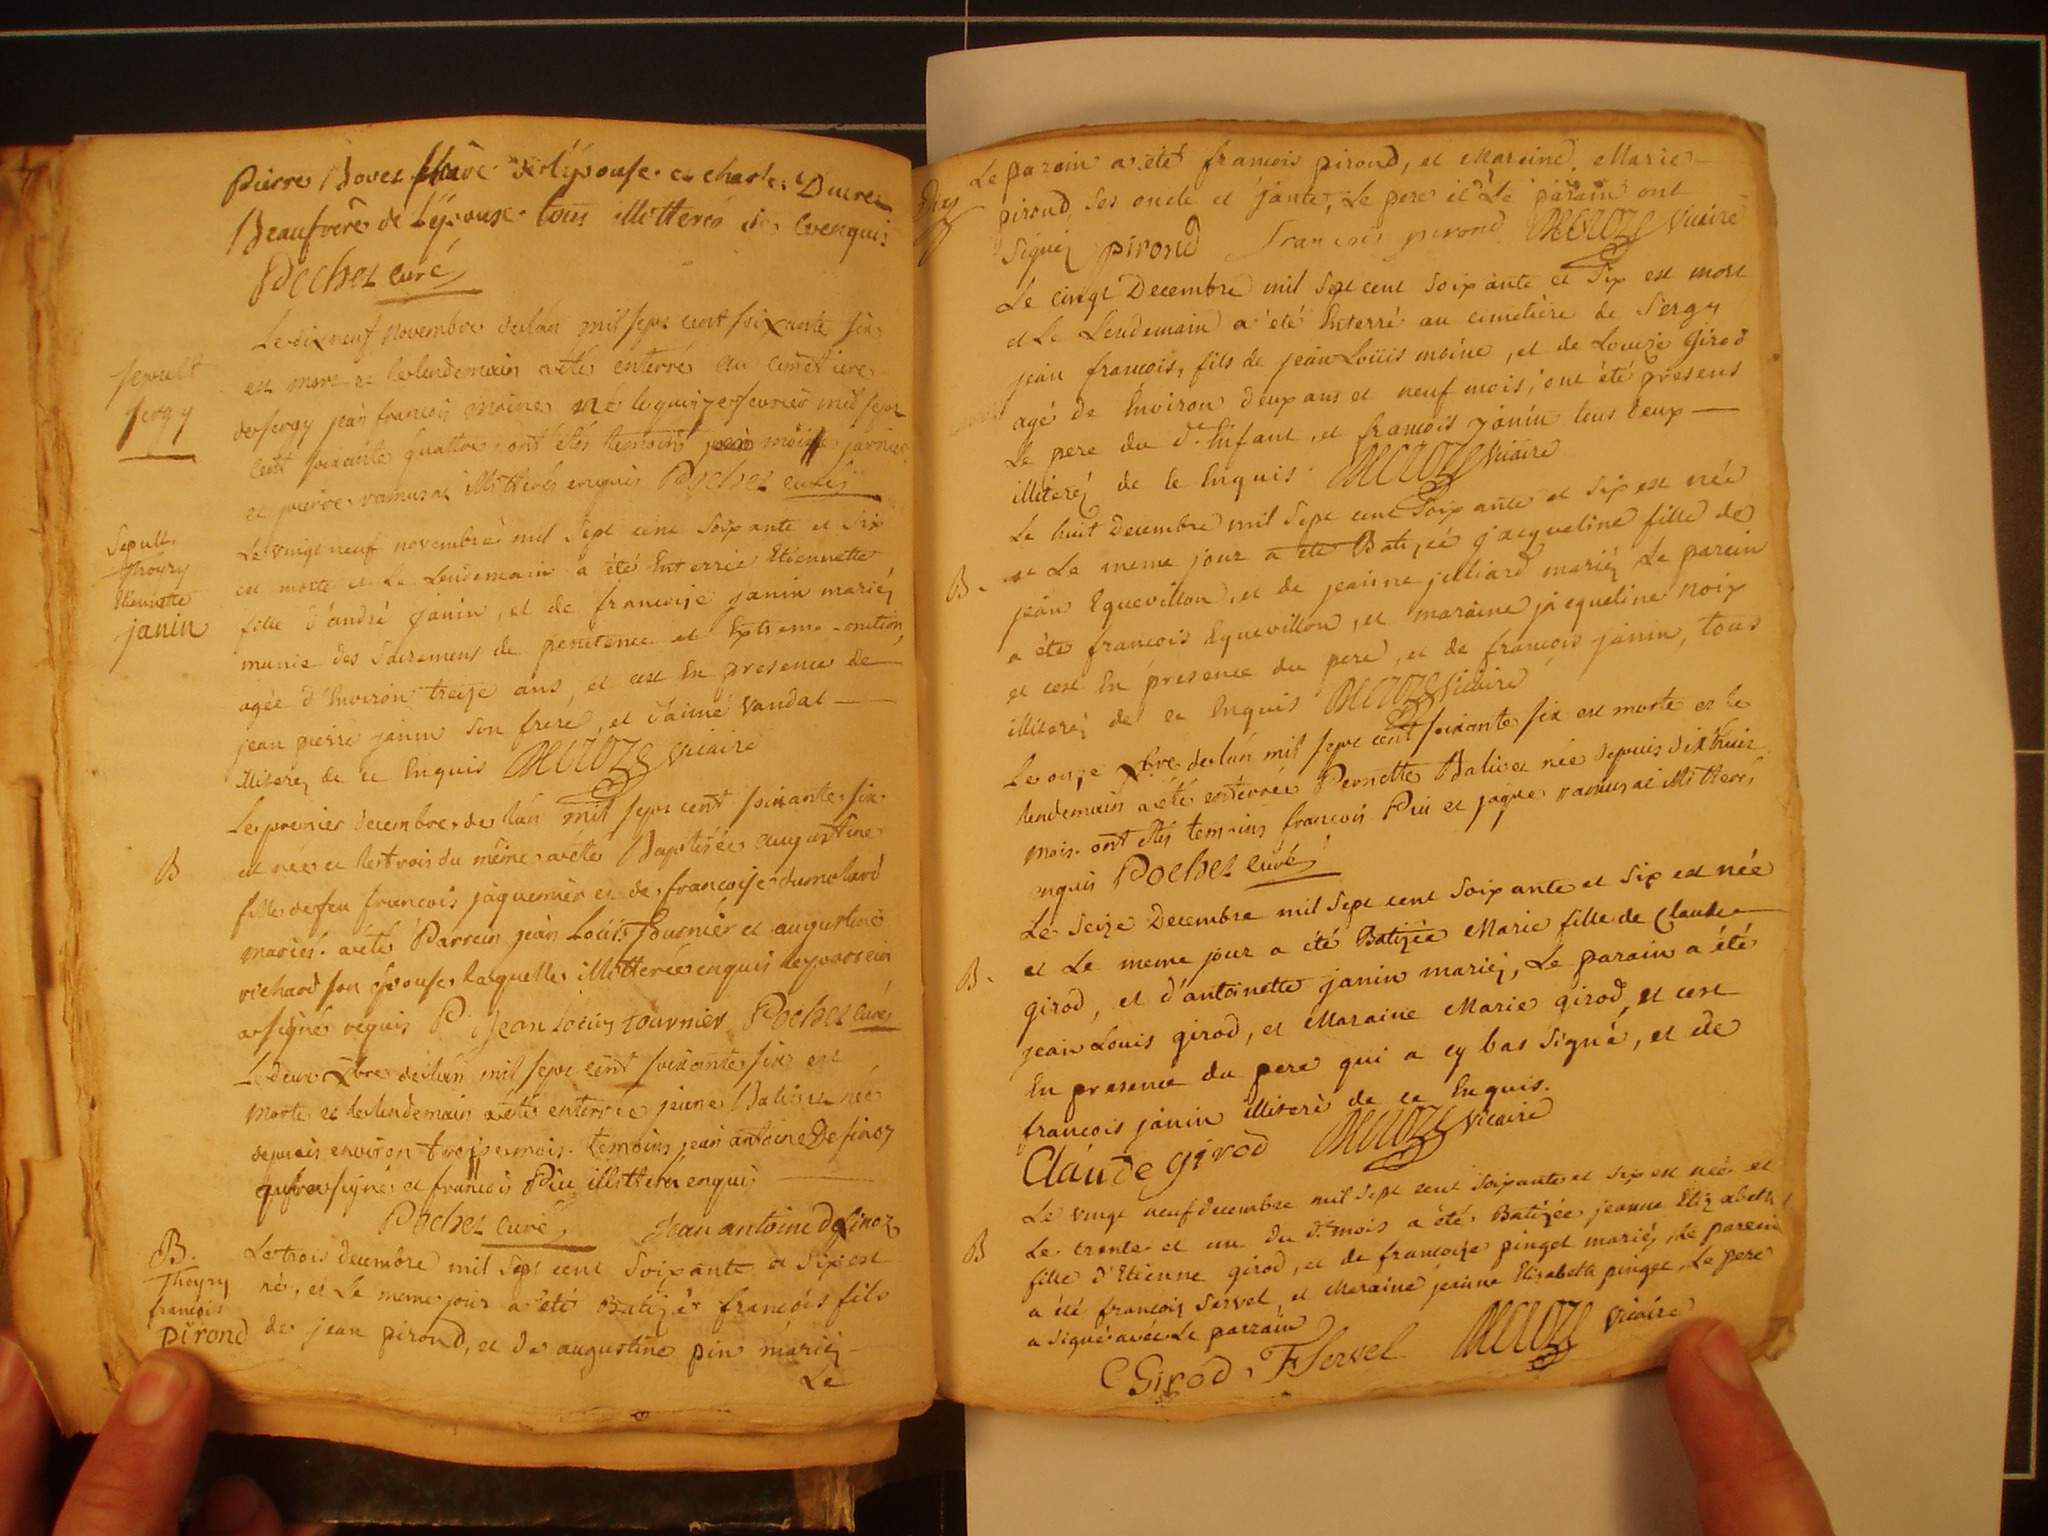 Pierre Bovet frère de l'épouse et charles Ducret
Beaufrère de l'épouse tous illitterés de ce enquis
Pochet curé
Le dix neuf novembre de lan mil sept cent soixante six
Sepult
est mort et le lendemain a été enterré au cimetiere
Sergy
de sergy jean francois moine né le quinze fevrier mil sept
cent soixante quattre. ont étés temoins moine janier
et pierre ramusat illitterés enquis Pochet curé
Sepult.
Thoyry
Etiennette
janin
Le vingt neuf novembre mil Sept cent Soixante et Six
est morte et Le Lendemain a été Enterrée Etiennette
fille d'andré janin, et de francoise janin mariéz
munie des Sacremens de penitence et Extreme-onction,
agée d'Environ treize ans, et cest En presence de
jean pierre janin Son frere, et d'aimé Vandal
illiterez de ce Enquis DECROZE vicaire
Le premier decembre de lan mil sept cent soixante six
B
est née et le trois du même a été Baptisée augustine
fille de feu francois jaquemier et de francoise dumolard
mariés. a été Parrein jean Louis Tournier et augustine
richard son épouse laquelle illitterée enquis le parrein
a signé requis P. Jean Louis tournier Pochet curé
Le deux Xbre de lan mil sept cent soixante six est
morte et le lendemain a été enterrée jeune Balivet née
depuis environ trois mois. temoins jean antoine Desinoz
qui a signé et francois Piu illitteré enquis
Pochet curé Jean antoine Desinoz
B.
Thoyry
francois
pirond
Le trois decembre mil Sept cent Soixante et Six est
né, et Le meme jour a été Batizé francois fils
de jean pirond, et de augustine pin mariéz
Le
Le parain a été francois pirond, et Maraine Marie
pirond, Ses oncle et tante, Le pere et Le parain ont
Signéz pirond francois pirond DECROZE vicaire
Le cinq Decembre mil Sept cent Soixante et Six est mort
et Le Lendemain a été Enterré au cimetière de Sergy
jean francois, fils de jean Loüis moine, et de Louize Girod
agé de Environ deux ans et neuf mois, ont été presens
Le pere du dt. Enfant, et francois janin tous deux
illiteréz de ce Enquis DECROZE vicaire
Le huit decembre mil Sept cent Soixante et Six est née
B.
et Le meme jour a été Batizée jacqueline fille de
jean Equevillon, et de jeanne julliard mariéz Le parein
a été francois Equevillon, et maraine jacqueline noix
et cest En presence du pere, et de francois janin, tous
illiteréz de ce Enquis DECROZE vicaire
Le onze Xbre de lan mil sept cent soixante six est morte et le
lendemain a été enterrée Pernette Balivet née depuis dix huit
mois. ont étés temoins francois Piu et jaque ramusat illitterés
enquis Pochet curé
Le Seize Decembre mil Sept cent Soixante et Six est née
B.
et Le meme jour a été Batizée Marie fille de Claude
girod, et d'antoinette janin mariéz, Le parain a été
jean Louis girod, et Maraine Marie girod, et cest
En presence du pere qui a cy bas Signé, et de
francois janin illiteré de ce Enquis.
Claude girod DECROZE vicaire
Le vingt neuf decembre mil Sept cent Soixante et Six est née et
B
Le trente et un du dt. mois a été Batizée jeanne Elizabeth
fille d'Etienne girod, et de francoize pinget mariéz, Le parein
a été francois Servel, et Maraine jeanne Elizabeth pinget, Le pere
a Signé avec Le parrain
E Girod, F Servel DECROZE vicaire